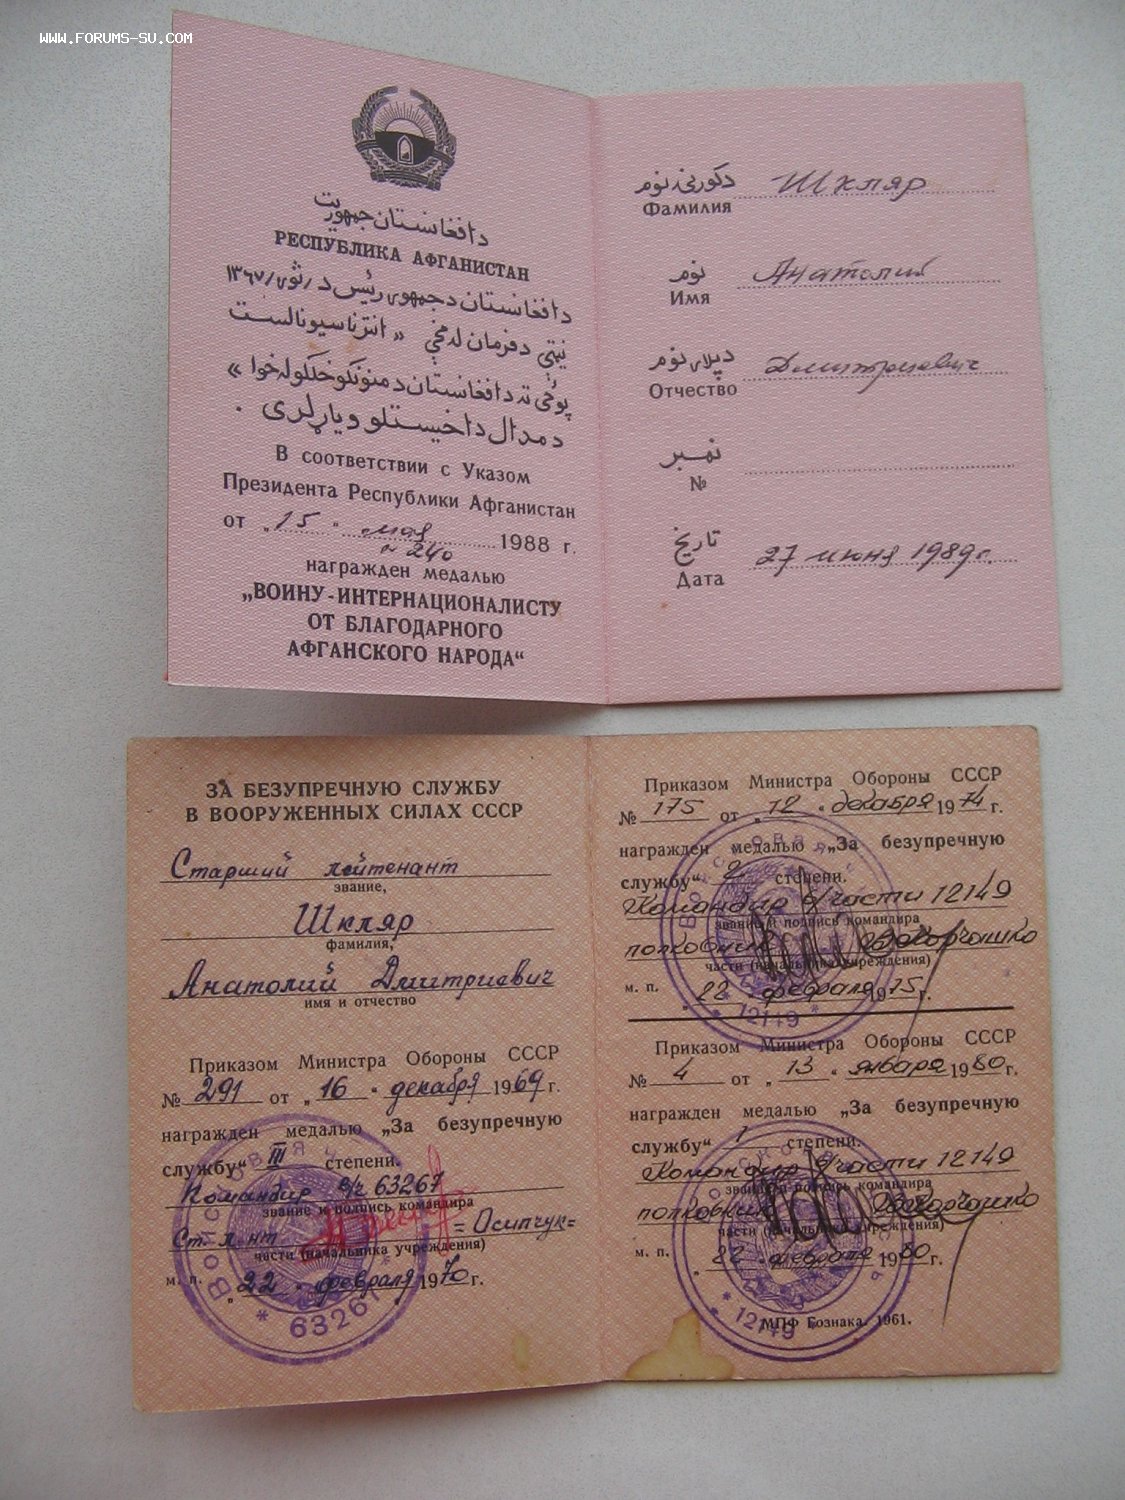 WWW.FORUMS-SU.COM
دافغانستان جمهوریت
РЕСПУБЛИКА АФГАНИСТАН
دافغانستان دجمهوری رئیس د / ثور / ۱۳۶۷
نیټې دفرمان له مخې « انترناسیونالست
پوځي ته دافغانستان دمننکوخلکوله خوا »
دمدال داخیستلو ویاړلری .
В соответствии с Указом
Президента Республики Афганистан
от „15" мая 1988 г.
№ 240
награжден медалью
„ВОИНУ-ИНТЕРНАЦИОНАЛИСТУ
ОТ БЛАГОДАРНОГО
АФГАНСКОГО НАРОДА“
دکورنۍ نوم Шкляр
Фамилия
نوم Анатолий
Имя
دپلار نوم Дмитриевич
Отчество
نمبر
№
تاریخ 27 июня 1989г.
Дата
ЗА БЕЗУПРЕЧНУЮ СЛУЖБУ
В ВООРУЖЕННЫХ СИЛАХ СССР
Старший лейтенант
звание,
Шкляр
фамилия,
Анатолий Дмитриевич
имя и отчество
Приказом Министра Обороны СССР
№ 291 от „16" декабря 1969 г.
награжден медалью „За безупречную
службу“ III степени.
Командир в/ч 63267
звание и подпись командира
Ст. л-нт =Осипчук=
части (начальника учреждения)
м. п. „22" февраля 1970 г.
* 63267 *
Приказом Министра Обороны СССР
№ 175 от „12" декабря 1974 г.
награжден медалью „За безупречную
службу“ 2 степени.
Командир в/части 12149
звание и подпись командира
полковник
части (начальника учреждения)
м. п. „22" февраля 1975 г.
* 12149 *
Приказом Министра Обороны СССР
№ 4 от „13" января 1980 г.
награжден медалью „За безупречную
службу“ 1 степени.
Командир в/части 12149
звание и подпись командира
полковник
части (начальника учреждения)
м. п. „22" февраля 1980 г.
* 12149 *
МПФ Гознака. 1961.